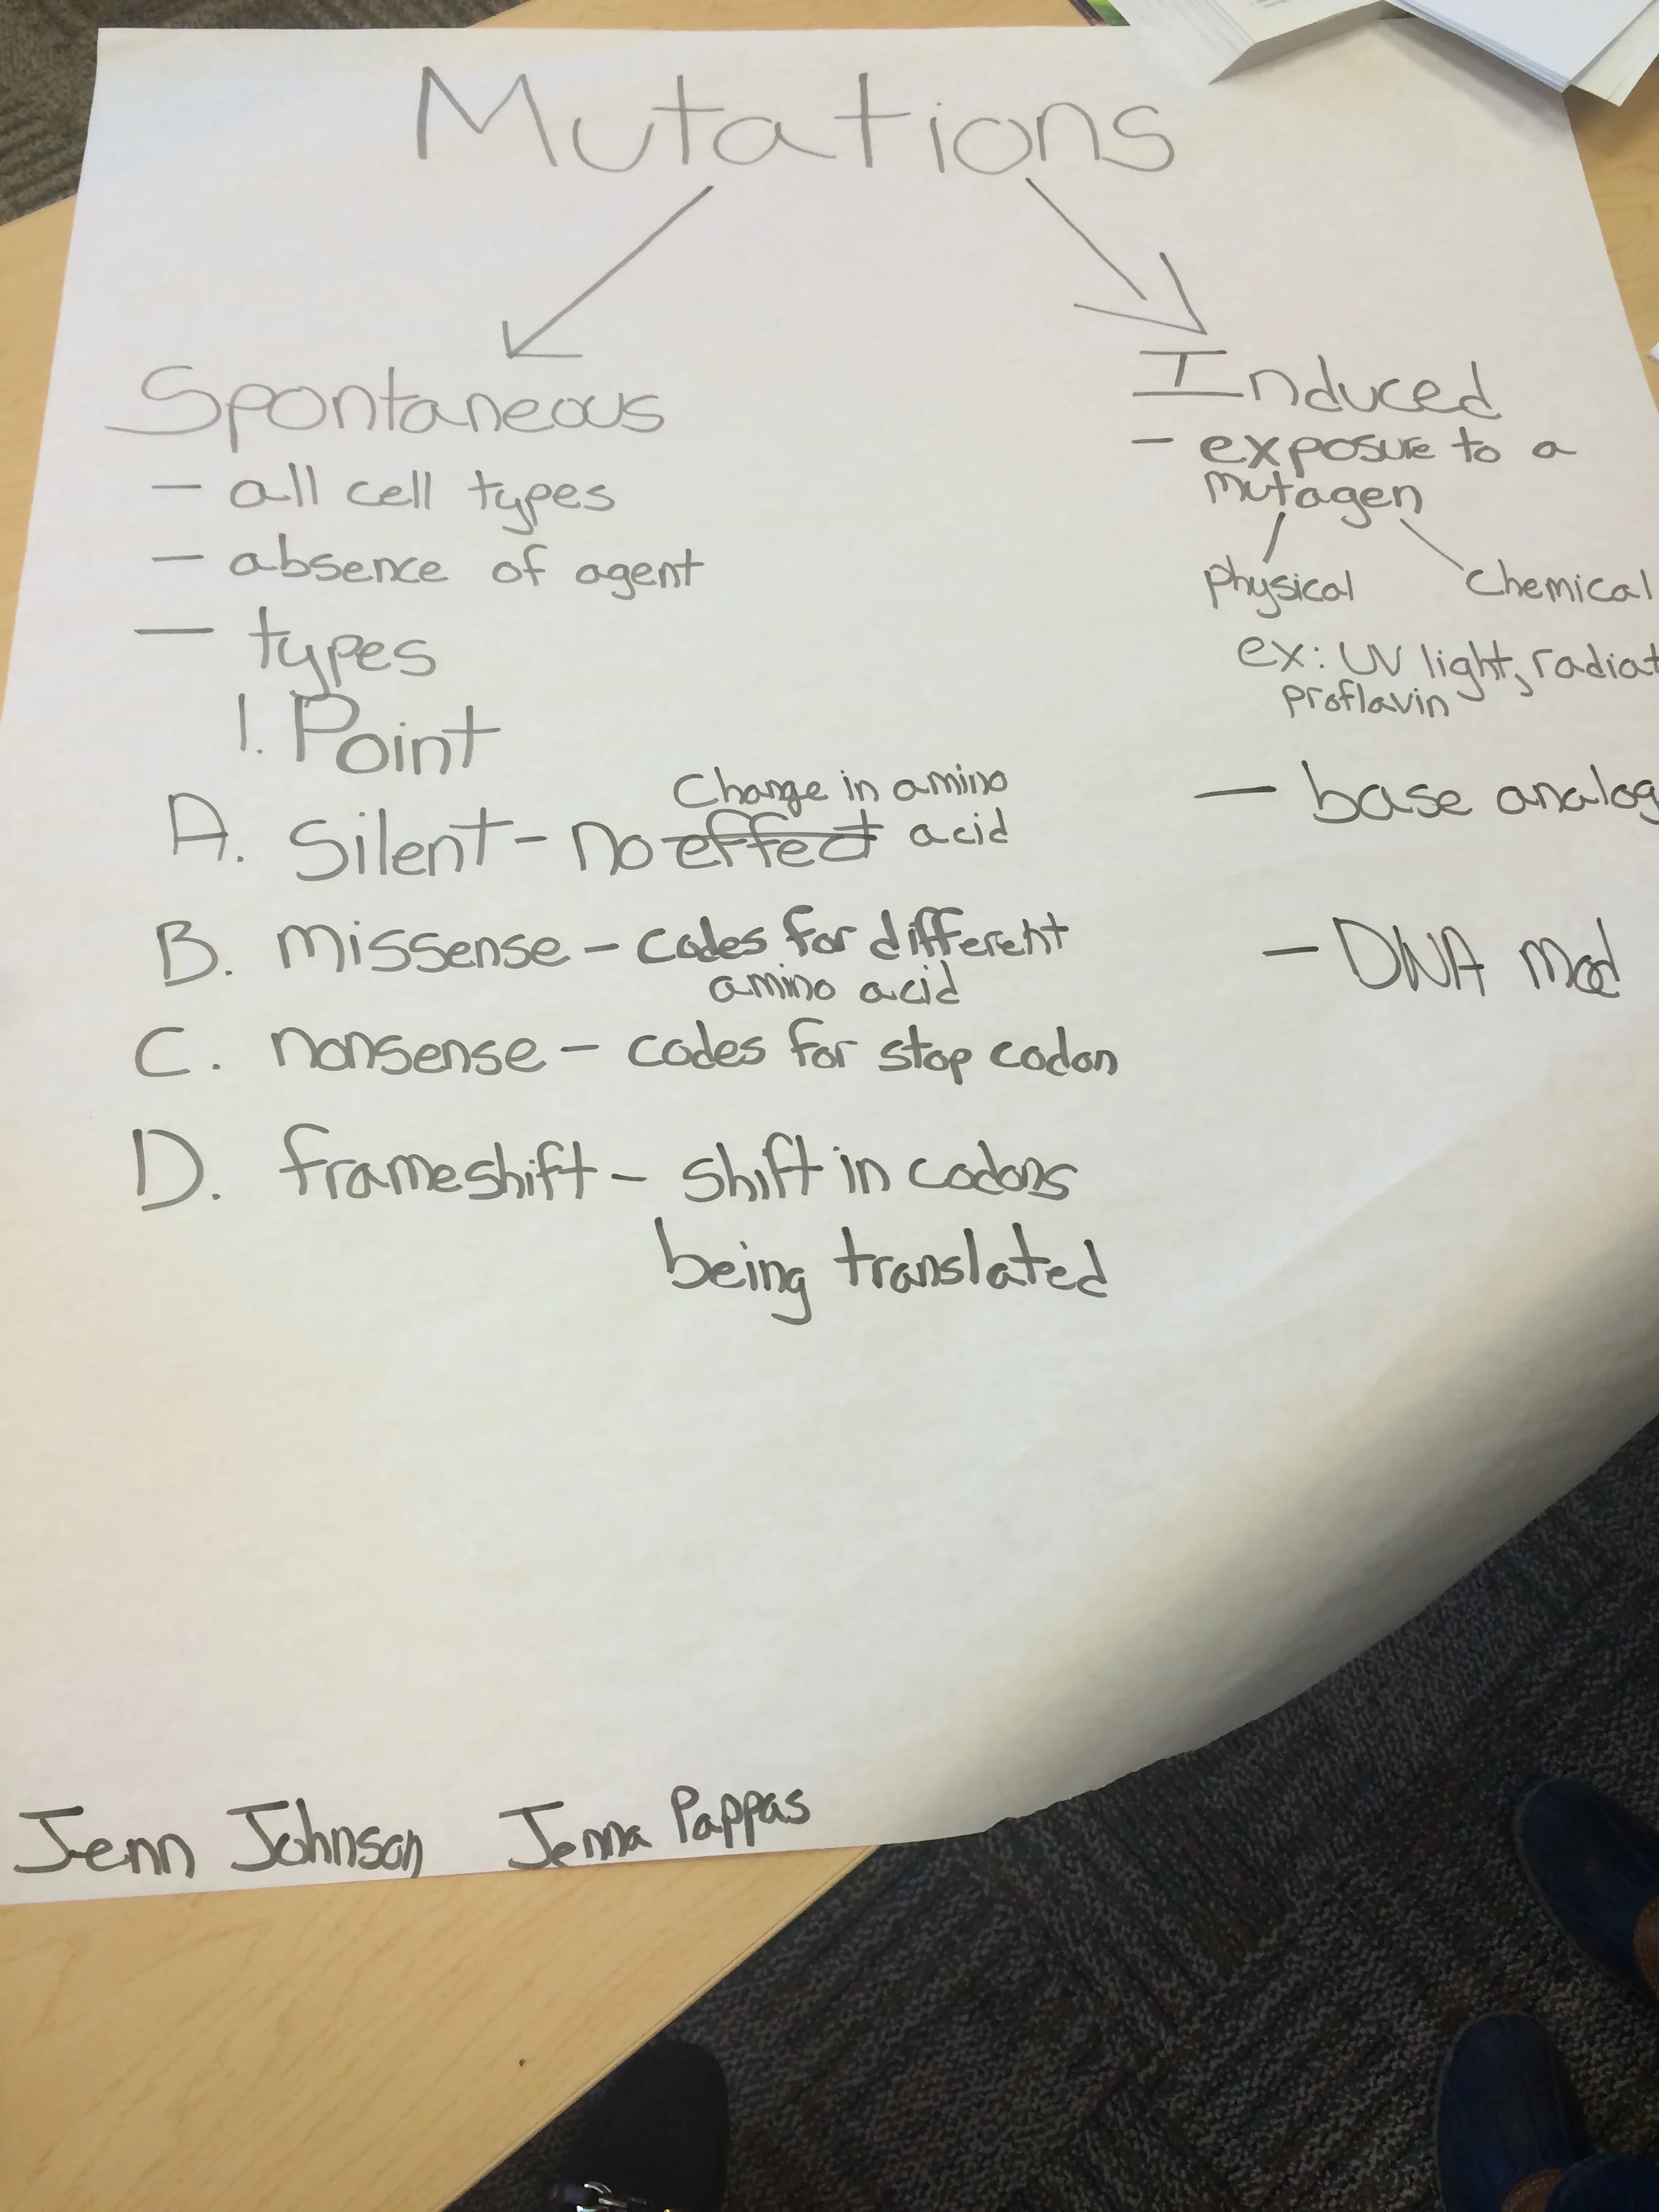 Mutations
Spontaneous
- all cell types
- absence of agent
- types
1. Point
A. Silent - no effect change in amino acid
B. missense - codes for different
amino acid
C. nonsense - codes for stop codon
D. frameshift - shift in codons
being translated
Induced
- exposure to a
mutagen
physical chemical
ex: UV light, radiat
proflavin
- base analog
- DNA mod
Jenn Johnson Jenna Pappas